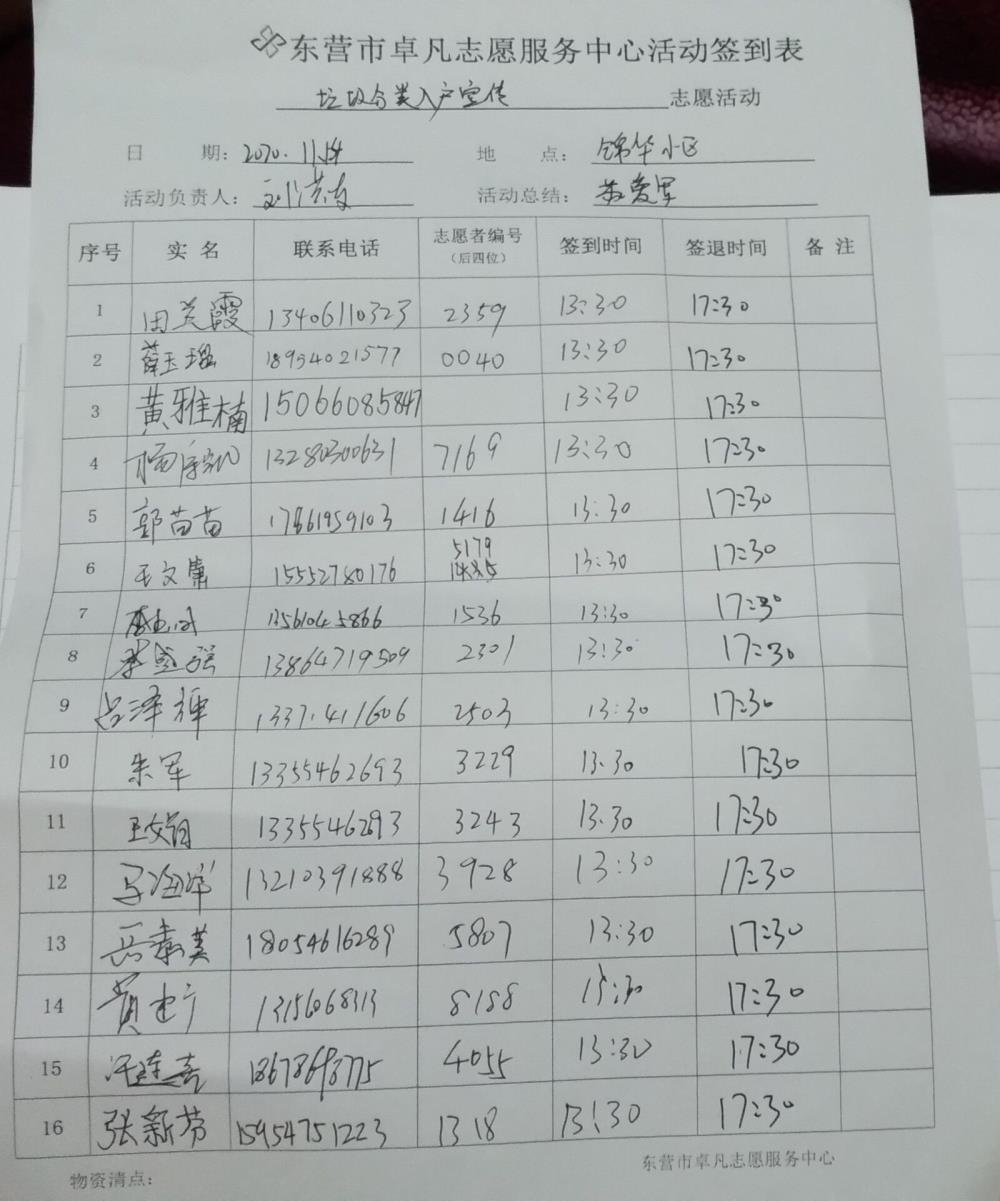 东营市卓凡志愿服务中心活动签到表
垃圾分类入户宣传 志愿活动
日 期: 2020.11.14 地 点: 锦华小区
活动负责人: 活动总结: 爱军
序号 实名 联系电话 志愿者编号(后四位) 签到时间 签退时间 备注
1 田美霞 13406110323 2359 13:30 17:30
2 薛玉瑶 18954021577 0040 13:30 17:30
3 黄雅楠 15066085847 13:30 17:30
4 13280300631 7169 13:30 17:30
5 郭苗苗 17861959103 1416 13:30 17:30
6 王文庸 15552780176 5179 13:30 17:30
7 13561045866 1536 13:30 17:30
8 李国强 13864719509 2301 13:30 17:30
9 吕泽禅 13371411606 2503 13:30 17:30
10 朱军 13355462693 3229 13:30 17:30
11 13355546293 3243 13:30 17:30
12 马海军 13210391888 3928 13:30 17:30
13 岳素美 18054616289 5807 13:30 17:30
14 贾建宁 13156068313 8188 13:30 17:30
15 汪连喜 18678693775 4055 13:30 17:30
16 张新芳 15954751223 1318 13:30 17:30
物资清点: 东营市卓凡志愿服务中心